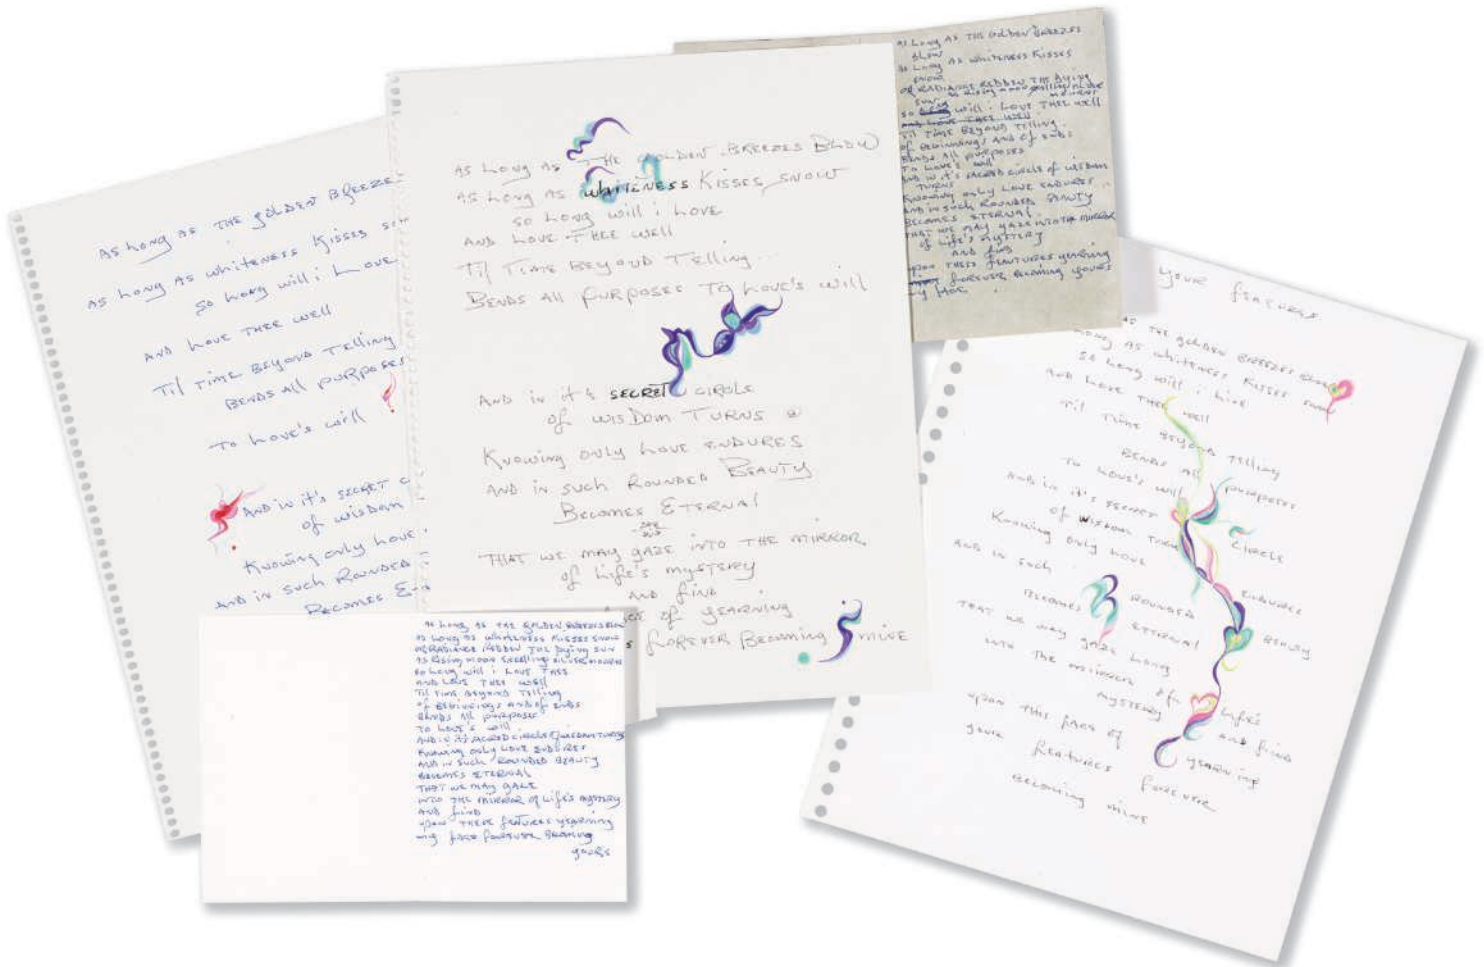 AS LONG AS THE GOLDEN BREEZE
AS LONG AS WHITENESS KISSES
SO LONG WILL i LOVE
AND LOVE THEE WELL
Til TIME BEYOND TELLING
BENDS All PURPOSES
TO LOVE'S WILL
AND IN IT'S SECRET
OF WISDOM
KNOWING ONLY LOVE
AND IN SUCH ROUNDED
BECOMES
AS LONG AS THE GOLDEN BREEZES BLOW
AS LONG AS WHITENESS KISSES SNOW
SO LONG WILL i LOVE
AND LOVE THEE WELL
Til TIME BEYOND TELLING...
BENDS All PURPOSES TO LOVE'S WILL
AND IN IT'S SECRET CIRCLE
OF WISDOM TURNS
KNOWING ONLY LOVE ENDURES
AND IN SUCH ROUNDED BEAUTY
BECOMES ETERNAL
THAT WE MAY GAZE INTO THE MIRROR
OF LIFE'S MYSTERY
AND FIND
OF YEARNING
FOREVER BECOMING MINE
AS LONG AS THE GOLDEN BREEZES
BLOW
AS LONG AS WHITENESS KISSES
SNOW
OF RADIANCE REDDEN THE DYING
SUN
SO LONG WILL i LOVE THEE WELL
AND LOVE THEE WELL
Til TIME BEYOND TELLING
OF BEGINNINGS AND OF ENDS
BENDS All PURPOSES
TO LOVE'S WILL
AND IN IT'S SACRED CIRCLE OF WISDOM
TURNS
KNOWING ONLY LOVE ENDURES
AND IN SUCH ROUNDED BEAUTY
BECOMES ETERNAL
THAT WE MAY GAZE INTO THE MIRROR
OF LIFE'S MYSTERY
AND FIND
UPON THESE FEAUTURES YEARNING
FOREVER BECOMING YOURS
MY FACE
AS LONG AS THE GOLDEN BREEZES BLOW
AS LONG AS WHITENESS KISSES SNOW
OF RADIANCE REDDEN THE DYING SUN
AS RISING MOON SWELLING SILVER
SO LONG WILL i LOVE THEE
AND LOVE THEE WELL
Til TIME BEYOND TELLING
OF BEGINNINGS AND OF ENDS
BENDS All PURPOSES
TO LOVE'S WILL
AND IN IT'S SACRED CIRCLE OF WISDOM TURNS
KNOWING ONLY LOVE ENDURES
AND IN SUCH ROUNDED BEAUTY
BECOMES ETERNAL
THAT WE MAY GAZE
INTO THE MIRROR OF LIFE'S MYSTERY
AND FIND
UPON THESE FEATURES YEARNING
MY FACE FOREVER BECOMING
YOURS
YOUR FEATURES
AS THE GOLDEN BREEZES BLOW
LONG AS WHITENESS KISSES SNOW
SO LONG WILL i LOVE
AND LOVE THEE WELL
Til TIME BEYOND TELLING
BENDS All PURPOSES
TO LOVE'S WILL
AND IN IT'S SECRET CIRCLE
OF WISDOM TURNS
KNOWING ONLY LOVE ENDURES
AND IN SUCH ROUNDED BEAUTY
BECOMES ETERNAL
THAT WE MAY GAZE LONG
INTO THE MIRROR OF LIFE'S
MYSTERY AND FIND
UPON THIS FACE OF YEARNING
YOUR FEATURES FOREVER
BECOMING MINE